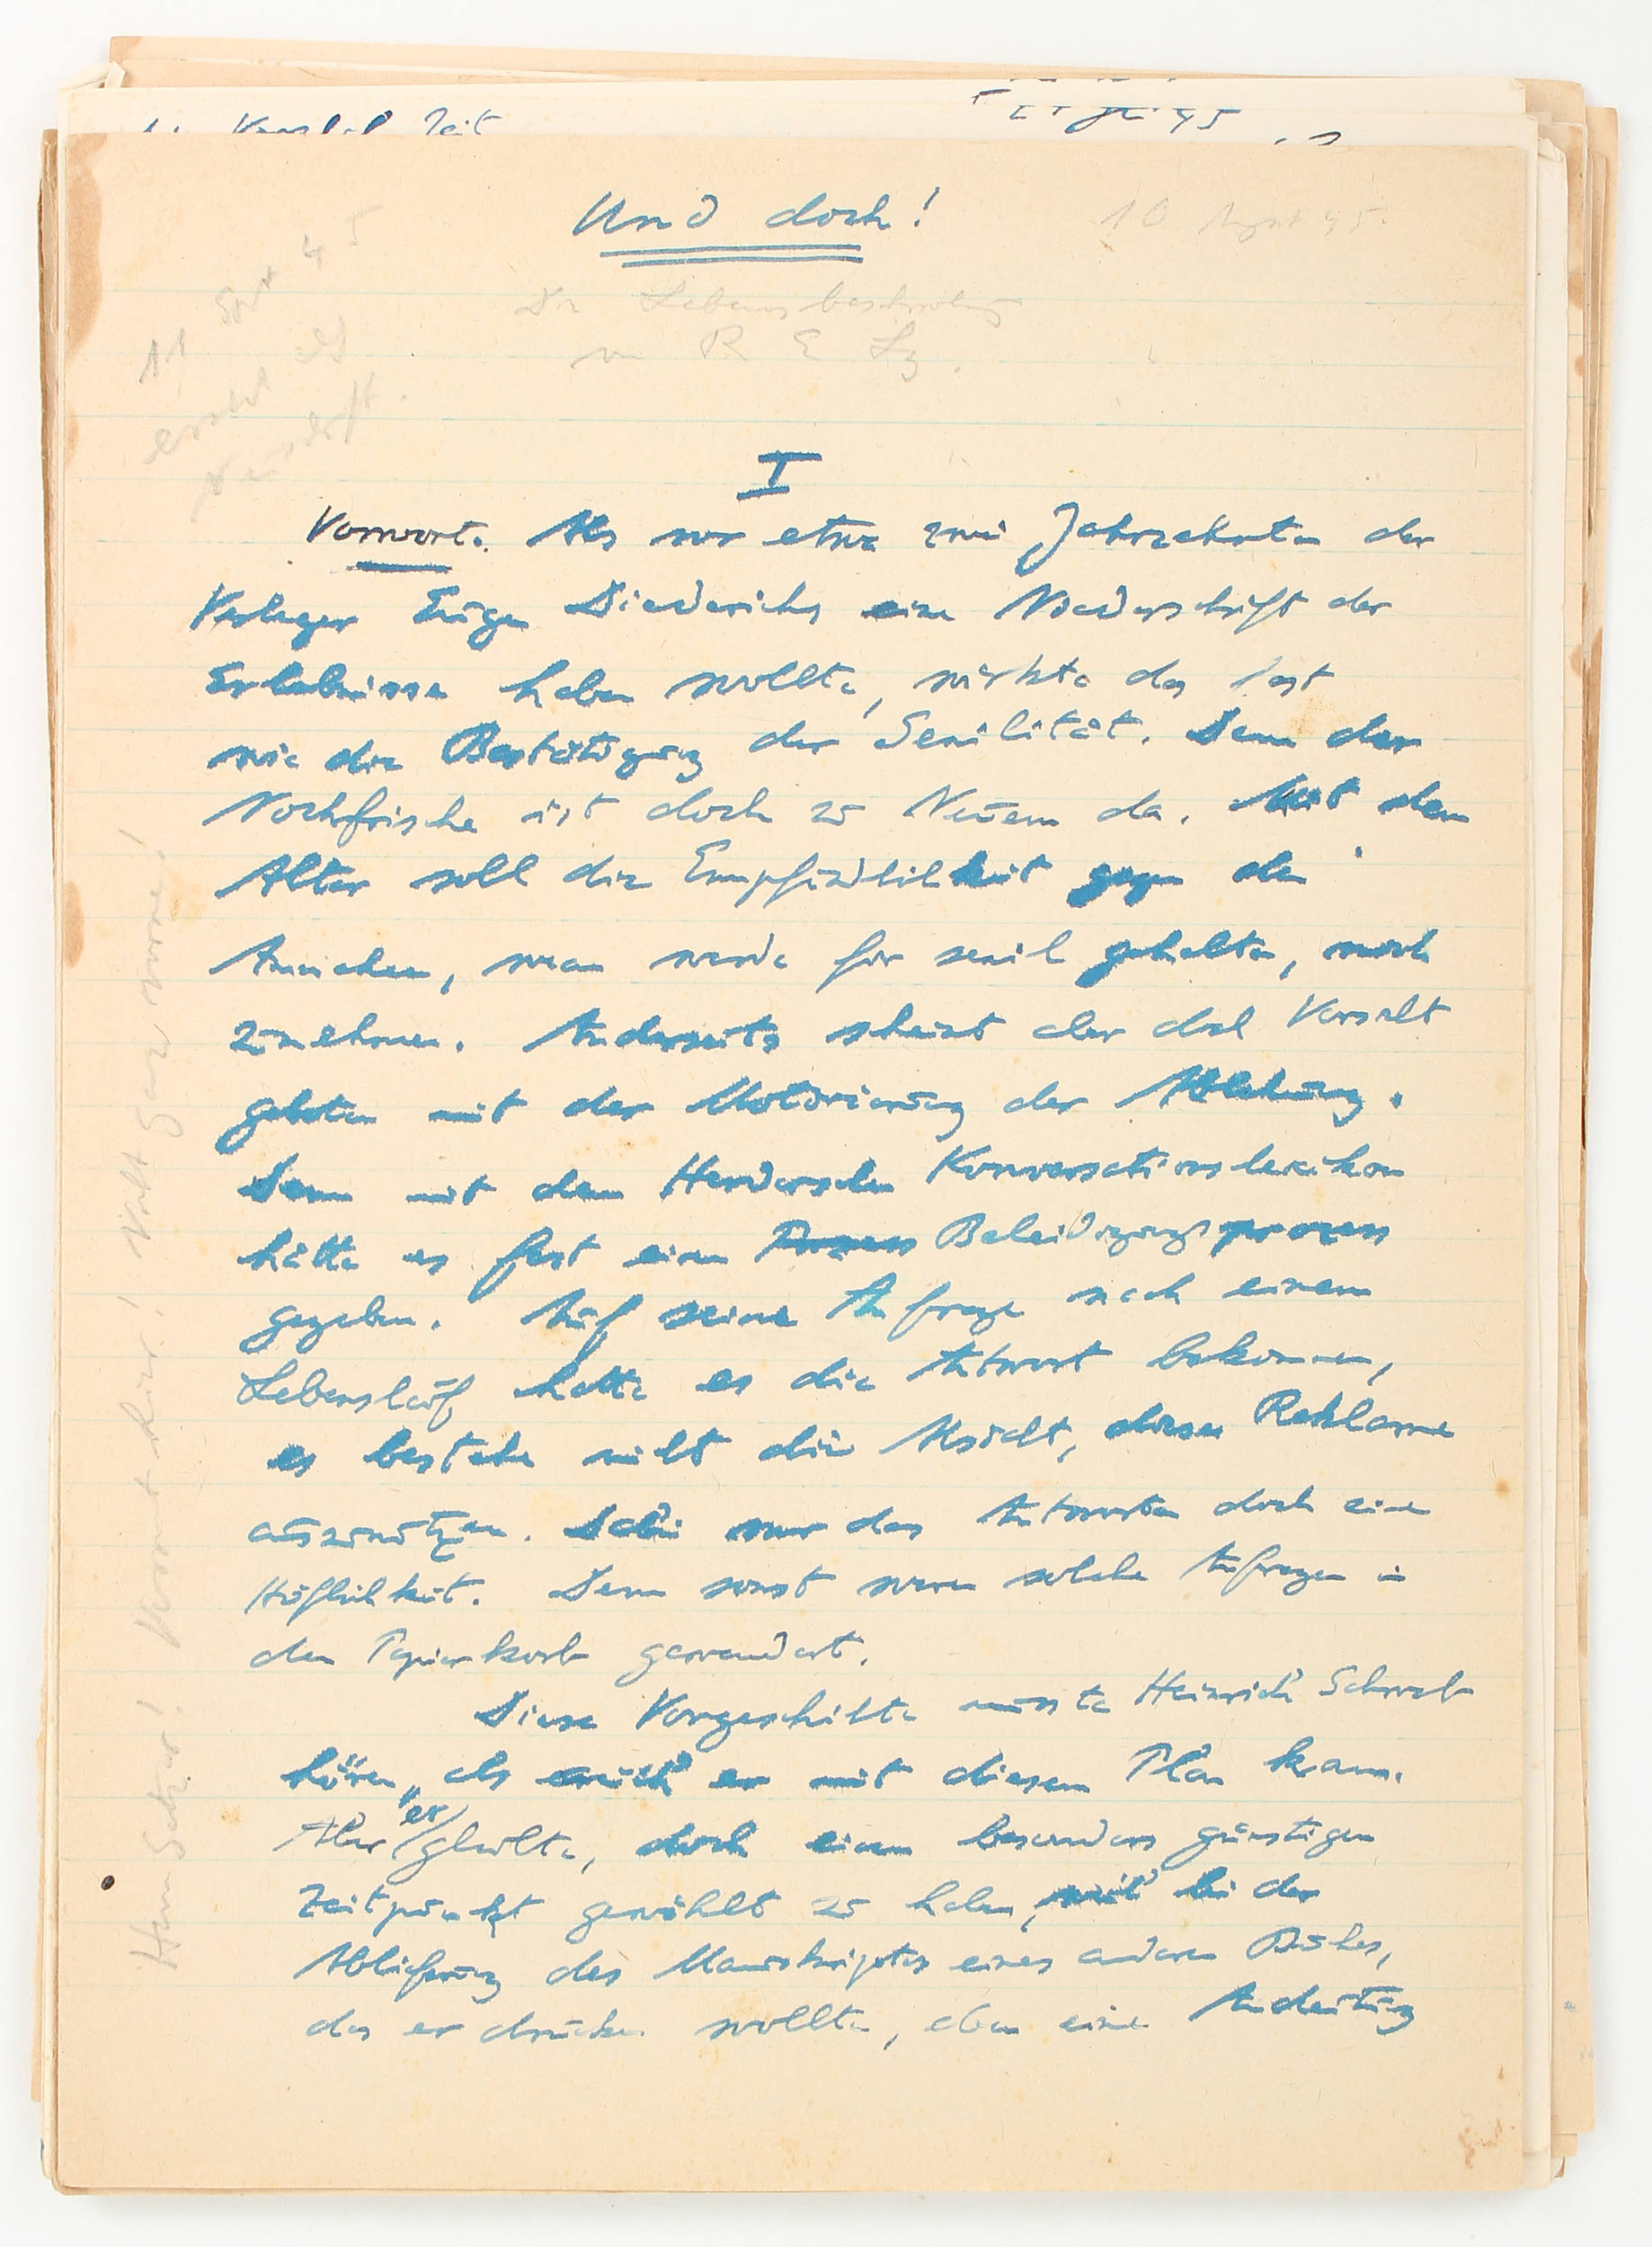 Und doch!
10 August 45.
Die Lebensbeschreibung
von R E Lz.
11 Spt 45
ersetzt als
Neuschrift.
I
Vorwort. Als vor etwa zwei Jahrzehnten der
Verleger Eugen Diederichs eine Niederschrift der
Erlebnisse haben wollte, wirkte das fast
wie die Bestätigung der Senilität. Denn der
Nochfrische ist doch zu Neuem da. Mit dem
Alter soll die Empfindlichkeit gegen den
Anschein, man werde für senil gehalten, noch
zunehmen. Anderseits scheint aber doch Vorsicht
geboten mit der Motivierung der Ablehnung.
Denn mit dem Herderschen Konversationslexikon
hätte es fast einen Prozess Beleidigungsprozess
gegeben. Auf seine Anfrage nach einem
Lebenslauf hatte es die Antwort bekommen,
es bestehe nicht die Absicht, diese Reklame
auszunützen. Dabei war das Antworten doch eine
Höflichkeit. Denn sonst waren solche Anfragen in
den Papierkorb gewandert.
Diese Vorgeschichte musste Heinrich Schwab
hören, als er mit diesem Plan kam.
Aber er glaubte, doch einen besonders günstigen
Zeitpunkt gewählt zu haben, weil bei der
Ablieferung des Manuskriptes eines anderen Buches,
das er drucken wollte, eben eine Andeutung
Herr Setzer! Kommt hier! Nicht ganz vorne!